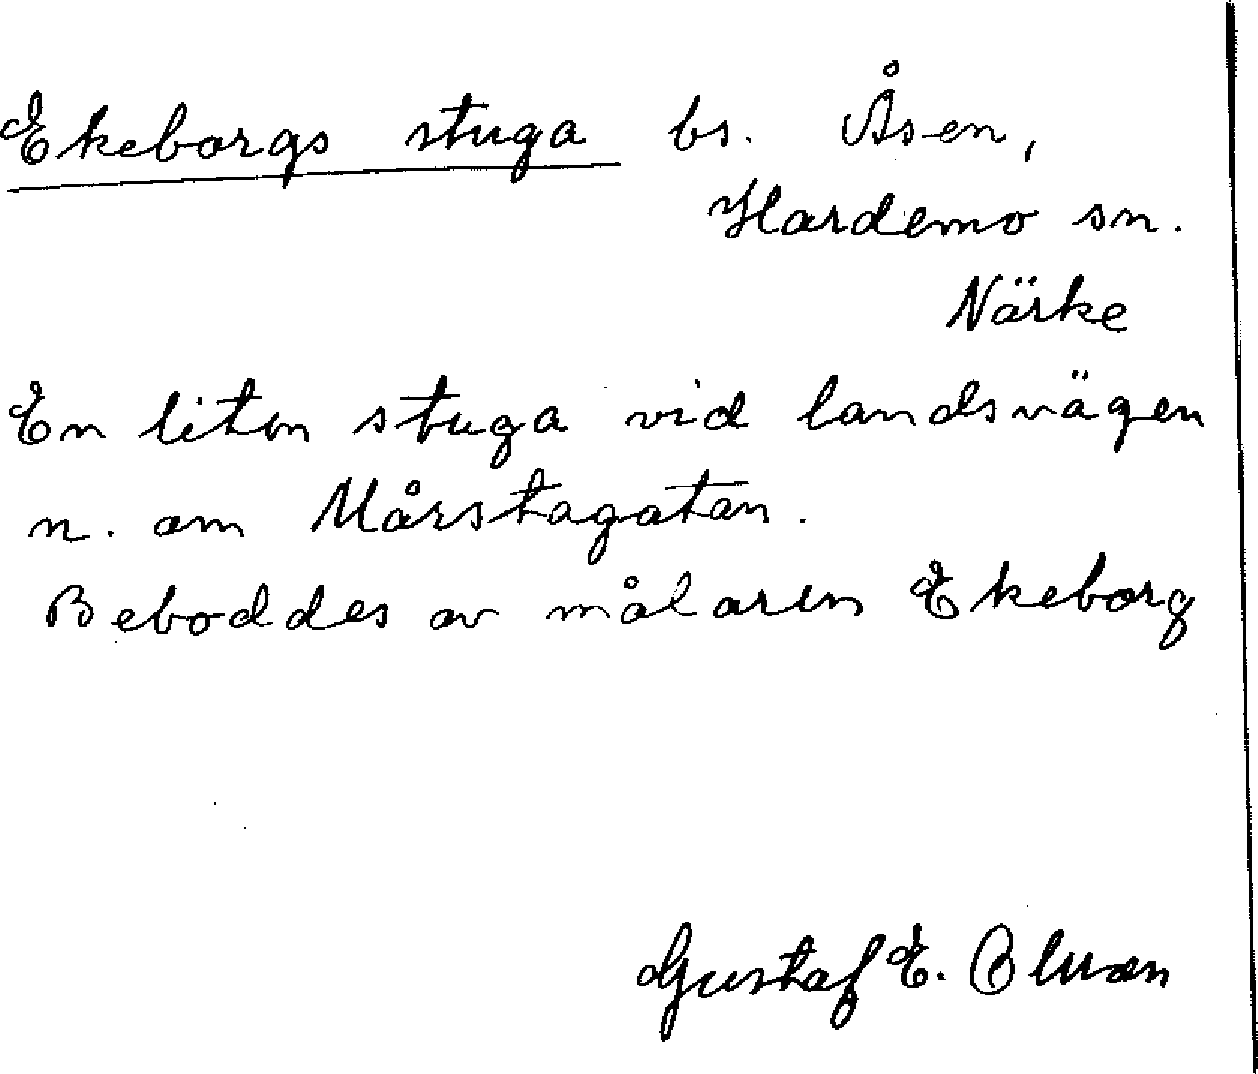 Ekeborgs stuga bs. Åsen,
Hardemo sn.
Närke
En liten stuga vid landsvägen
n. om Mårstagatan.
Beboddes av målaren Ekeborg
Gustaf E.